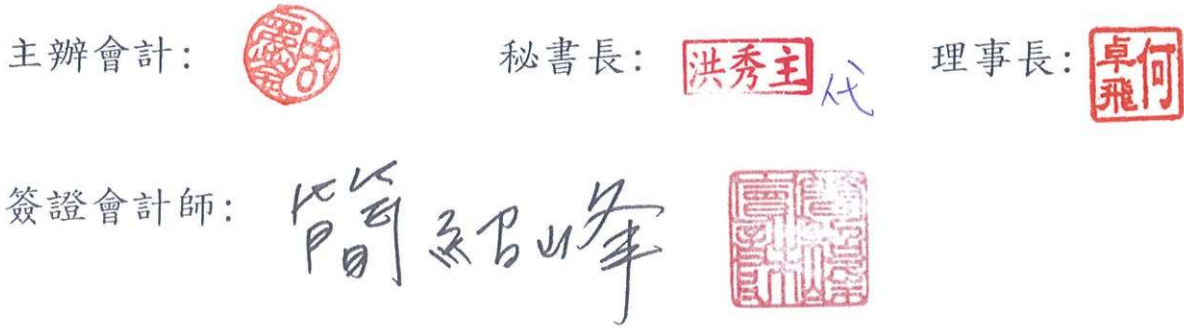 主辦會計： 秘書長： 洪秀主 代 理事長： 何卓飛
簽證會計師： 簡紹峰